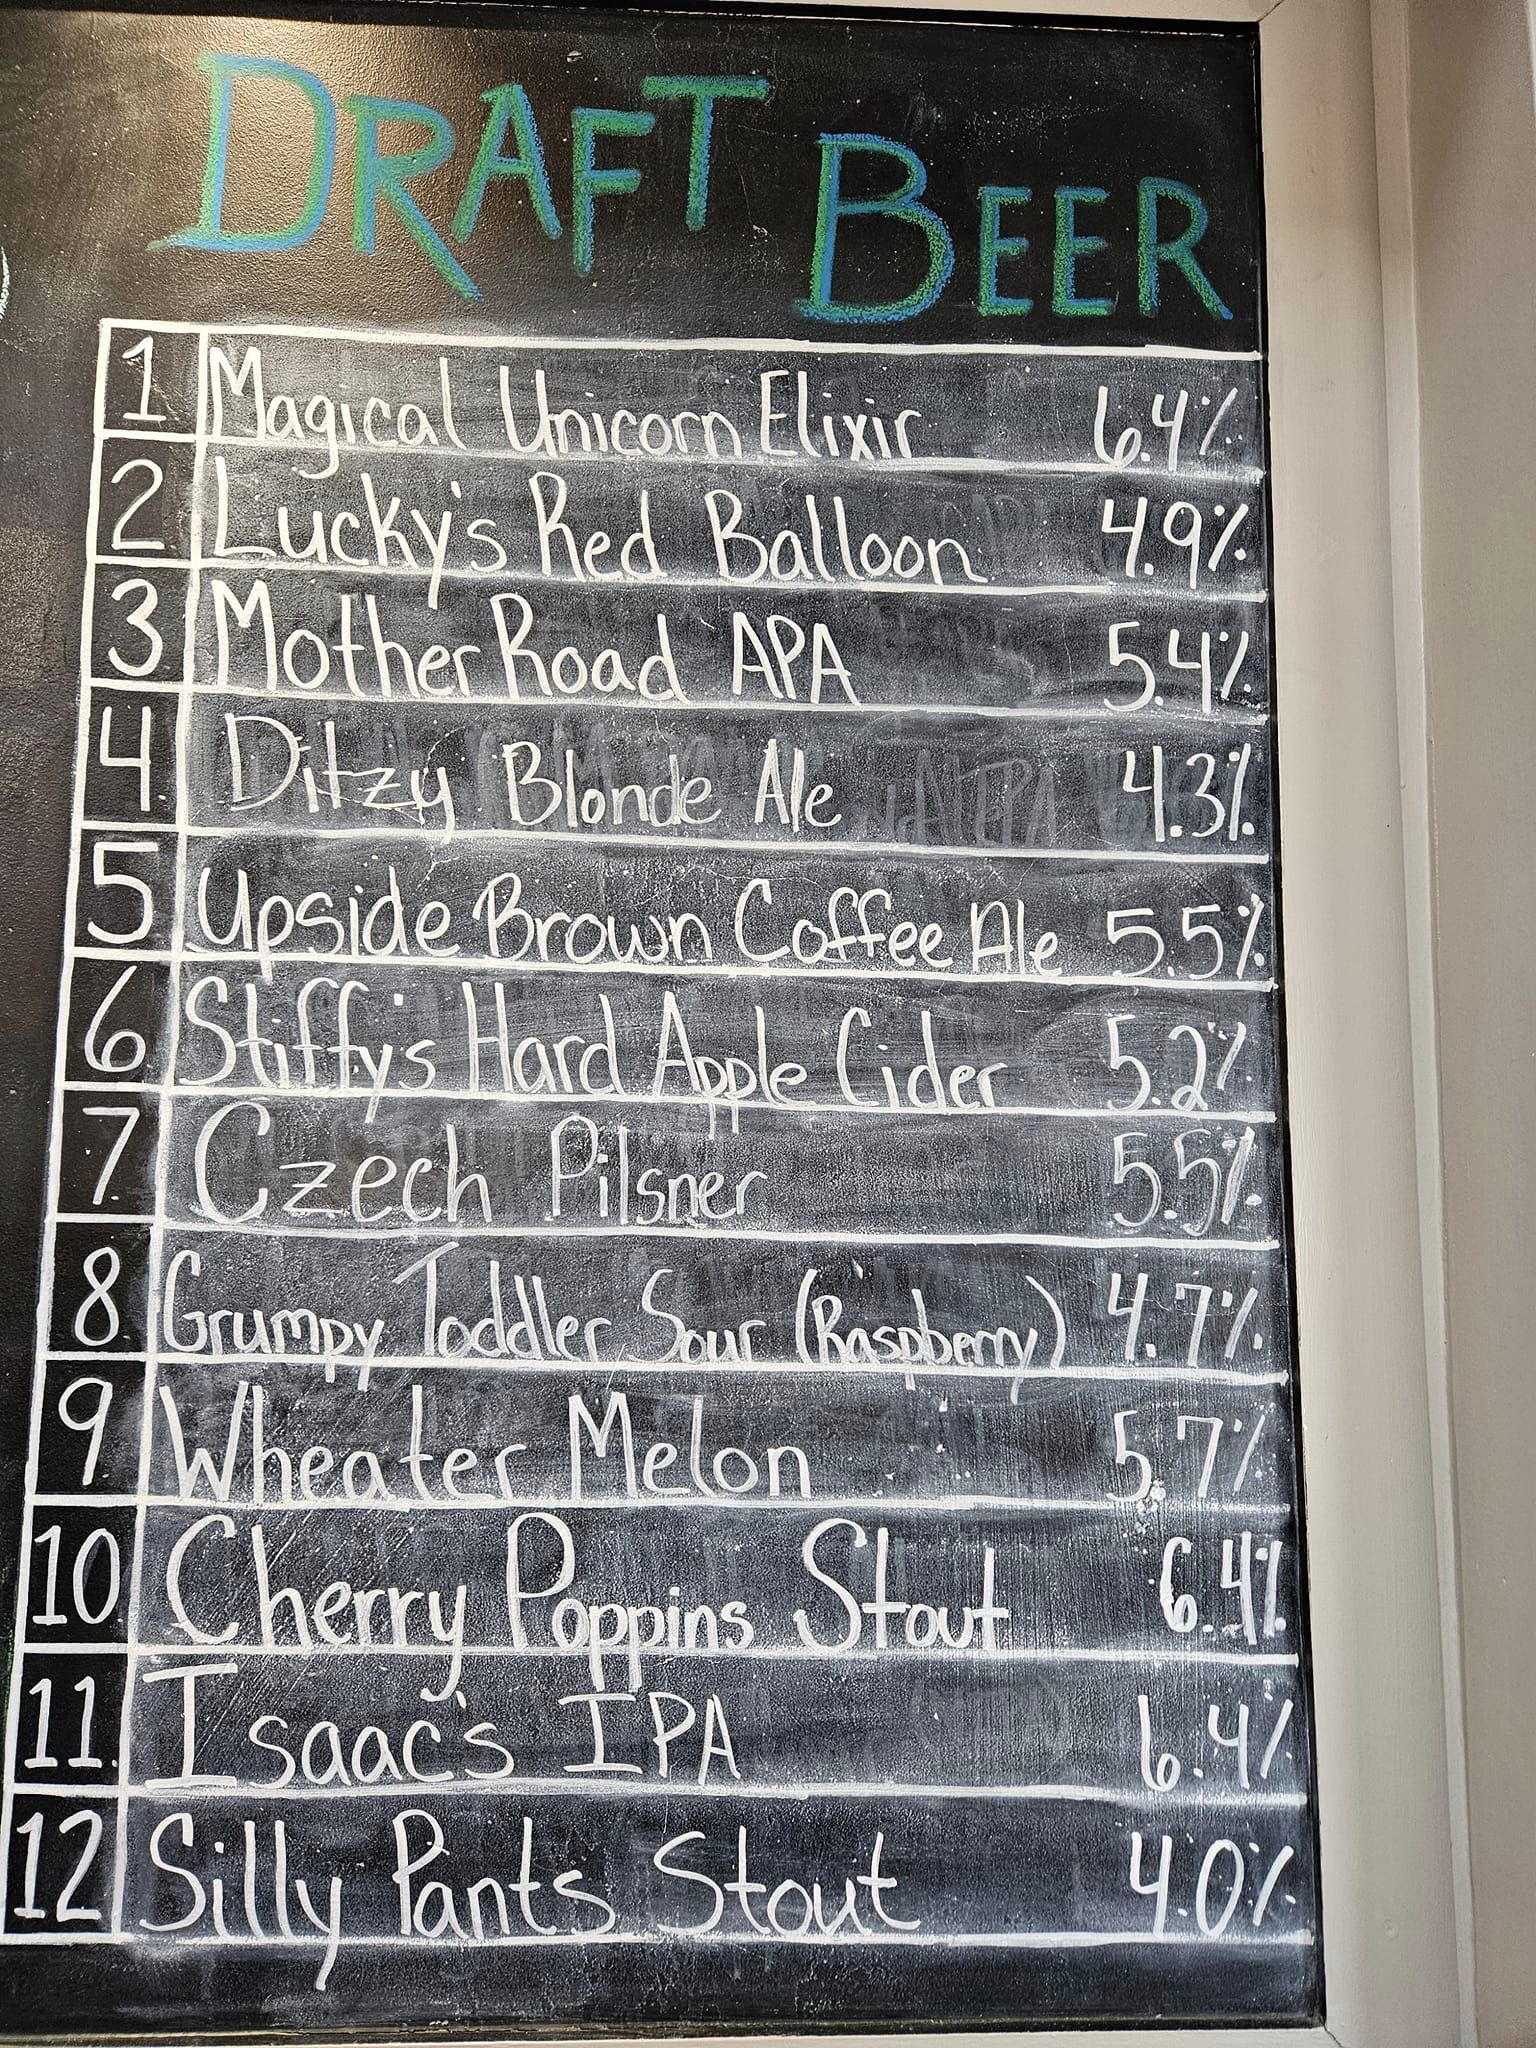 DRAFT BEER
1 Magical Unicorn Elixir 6.4%
2 Lucky's Red Balloon 4.9%
3 Mother Road APA 5.4%
4 Ditzy Blonde Ale 4.3%
5 Upside Brown Coffee Ale 5.5%
6 Stiffy's Hard Apple Cider 5.2%
7 Czech Pilsner 5.5%
8 Grumpy Toddler Sour (Raspberry) 4.7%
9 Wheater Melon 5.7%
10 Cherry Poppins Stout 6.4%
11 Isaac's IPA 6.4%
12 Silly Pants Stout 4.0%